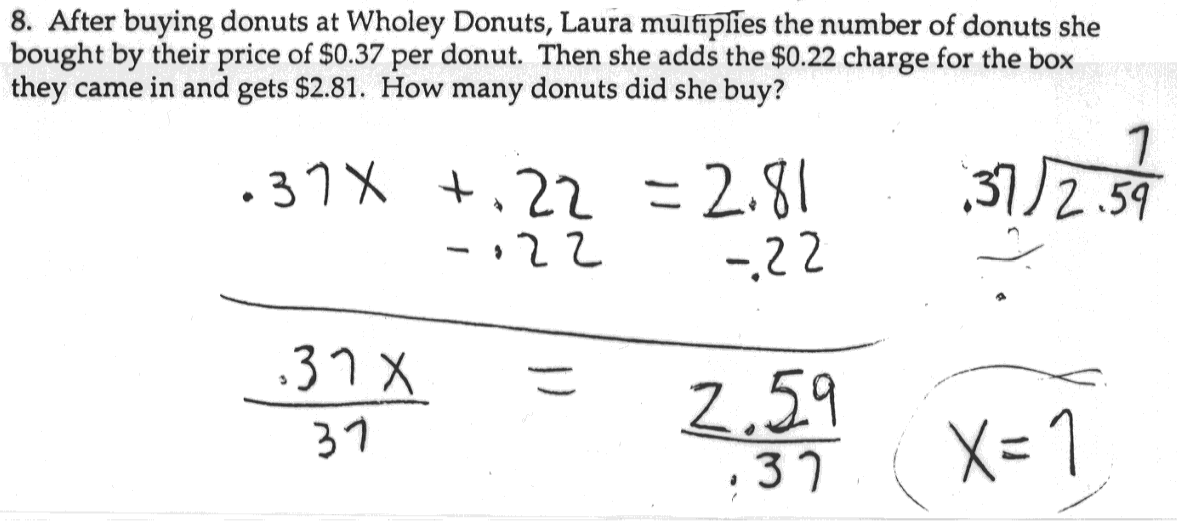 8. After buying donuts at Wholey Donuts, Laura multiplies the number of donuts she
bought by their price of $0.37 per donut. Then she adds the $0.22 charge for the box
they came in and gets $2.81. How many donuts did she buy?
.37X + .22 = 2.81
- .22 -.22
.37X = 2.59
37 .37
7
.37 2.59
X = 7